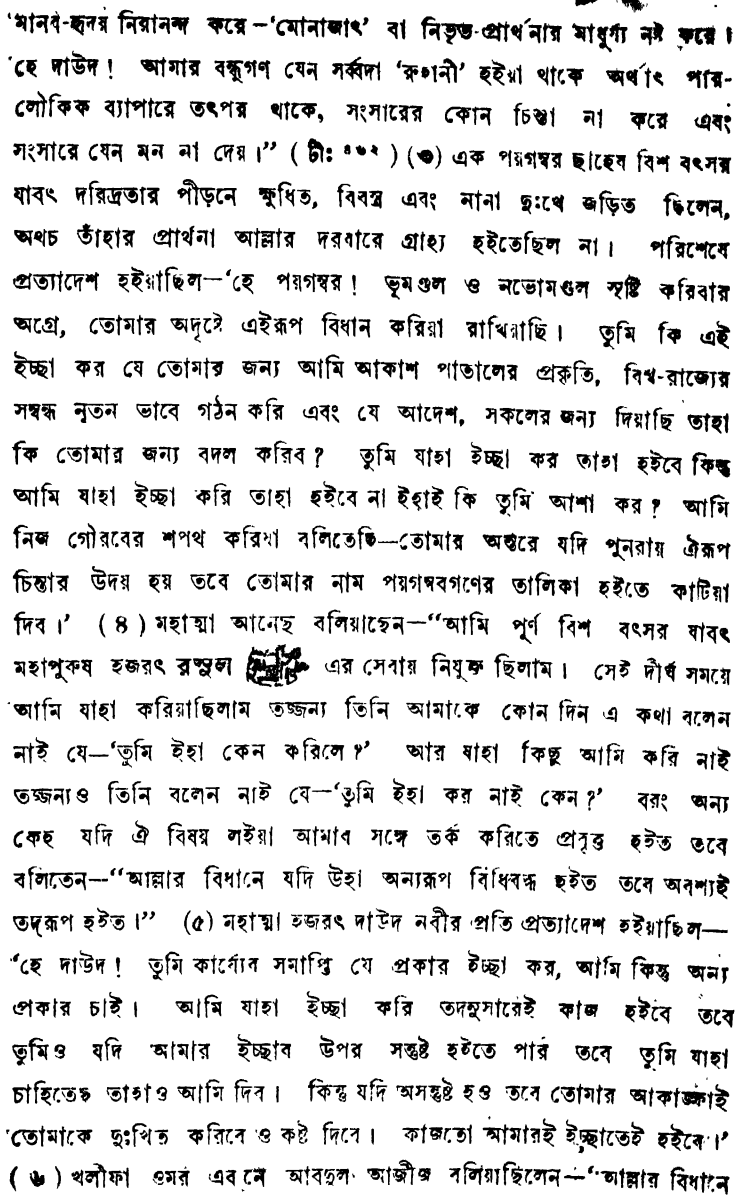 মানব-হৃদয় নিরানন্দ করে—‘মোনাজাৎ’ বা নিভৃত-প্রার্থনার মাধুর্য্য নষ্ট করে।
‘হে দাউদ! আমার বন্ধুগণ যেন সর্ব্বদা ‘রুহানী’ হইয়া থাকে অর্থাৎ পার-
লৌকিক ব্যাপারে তৎপর থাকে, সংসারের কোন চিন্তা না করে এবং
সংসারে যেন মন না দেয়।” ( টীঃ ৪৬২ ) (৩) এক পয়গম্বর ছাহেব বিশ বৎসর
যাবৎ দরিদ্রতার পীড়নে ক্ষুধিত, বিবস্ত্র এবং নানা দুঃখে জড়িত ছিলেন,
অথচ তাঁহার প্রার্থনা আল্লার দরবারে গ্রাহ্য হইতেছিল না। পরিশেষে
প্রত্যাদেশ হইয়াছিল—‘হে পয়গম্বর! ভূমণ্ডল ও নভোমণ্ডল সৃষ্টি করিবার
অগ্রে, তোমার অদৃষ্টে এইরূপ বিধান করিয়া রাখিয়াছি। তুমি কি এই
ইচ্ছা কর যে তোমার জন্য আমি আকাশ পাতালের প্রকৃতি, বিশ্ব-রাজ্যের
সম্বন্ধ নূতন ভাবে গঠন করি এবং যে আদেশ, সকলের জন্য দিয়াছি তাহা
কি তোমার জন্য বদল করিব? তুমি যাহা ইচ্ছা কর তাহা হইবে কিন্তু
আমি যাহা ইচ্ছা করি তাহা হইবে না ইহাই কি তুমি আশা কর? আমি
নিজ গৌরবের শপথ করিয়া বলিতেছি—তোমার অন্তরে যদি পুনরায় ঐরূপ
চিন্তার উদয় হয় তবে তোমার নাম পয়গম্বরগণের তালিকা হইতে কাটিয়া
দিব।’ (৪) মহাত্মা আনেছ বলিয়াছেন—“আমি পূর্ণ বিশ বৎসর যাবৎ
মহাপুরুষ হজরৎ রসুল এর সেবায় নিযুক্ত ছিলাম। সেই দীর্ঘ সময়ে
আমি যাহা করিয়াছিলাম তজ্জন্য তিনি আমাকে কোন দিন এ কথা বলেন
নাই যে—‘তুমি ইহা কেন করিলে?’ আর যাহা কিছু আমি করি নাই
তজ্জন্যও তিনি বলেন নাই যে—‘তুমি ইহা কর নাই কেন?’ বরং অন্য
কেহ যদি ঐ বিষয় লইয়া আমার সঙ্গে তর্ক করিতে প্রবৃত্ত হইত তবে
বলিতেন—“আল্লার বিধানে যদি উহা অন্যরূপ বিধিবদ্ধ হইত তবে অবশ্যই
তদ্‌রূপ হইত।” (৫) মহাত্মা হজরৎ দাউদ নবীর প্রতি প্রত্যাদেশ হইয়াছিল—
‘হে দাউদ! তুমি কার্য্যের সমাপ্তি যে প্রকার ইচ্ছা কর, আমি কিন্তু অন্য
প্রকার চাই। আমি যাহা ইচ্ছা করি তদনুসারেই কাজ হইবে তবে
তুমিও যদি আমার ইচ্ছার উপর সন্তুষ্ট হইতে পার তবে তুমি যাহা
চাহিতেছ তাহাও আমি দিব। কিন্তু যদি অসন্তুষ্ট হও তবে তোমার আকাঙ্ক্ষাই
তোমাকে দুঃখিত করিবে ও কষ্ট দিবে। কাজতো আমারই ইচ্ছাতেই হইবে।’
(৬) খলীফা ওমর এবনে আবদুল আজীজ বলিয়াছিলেন—“আল্লার বিধানে